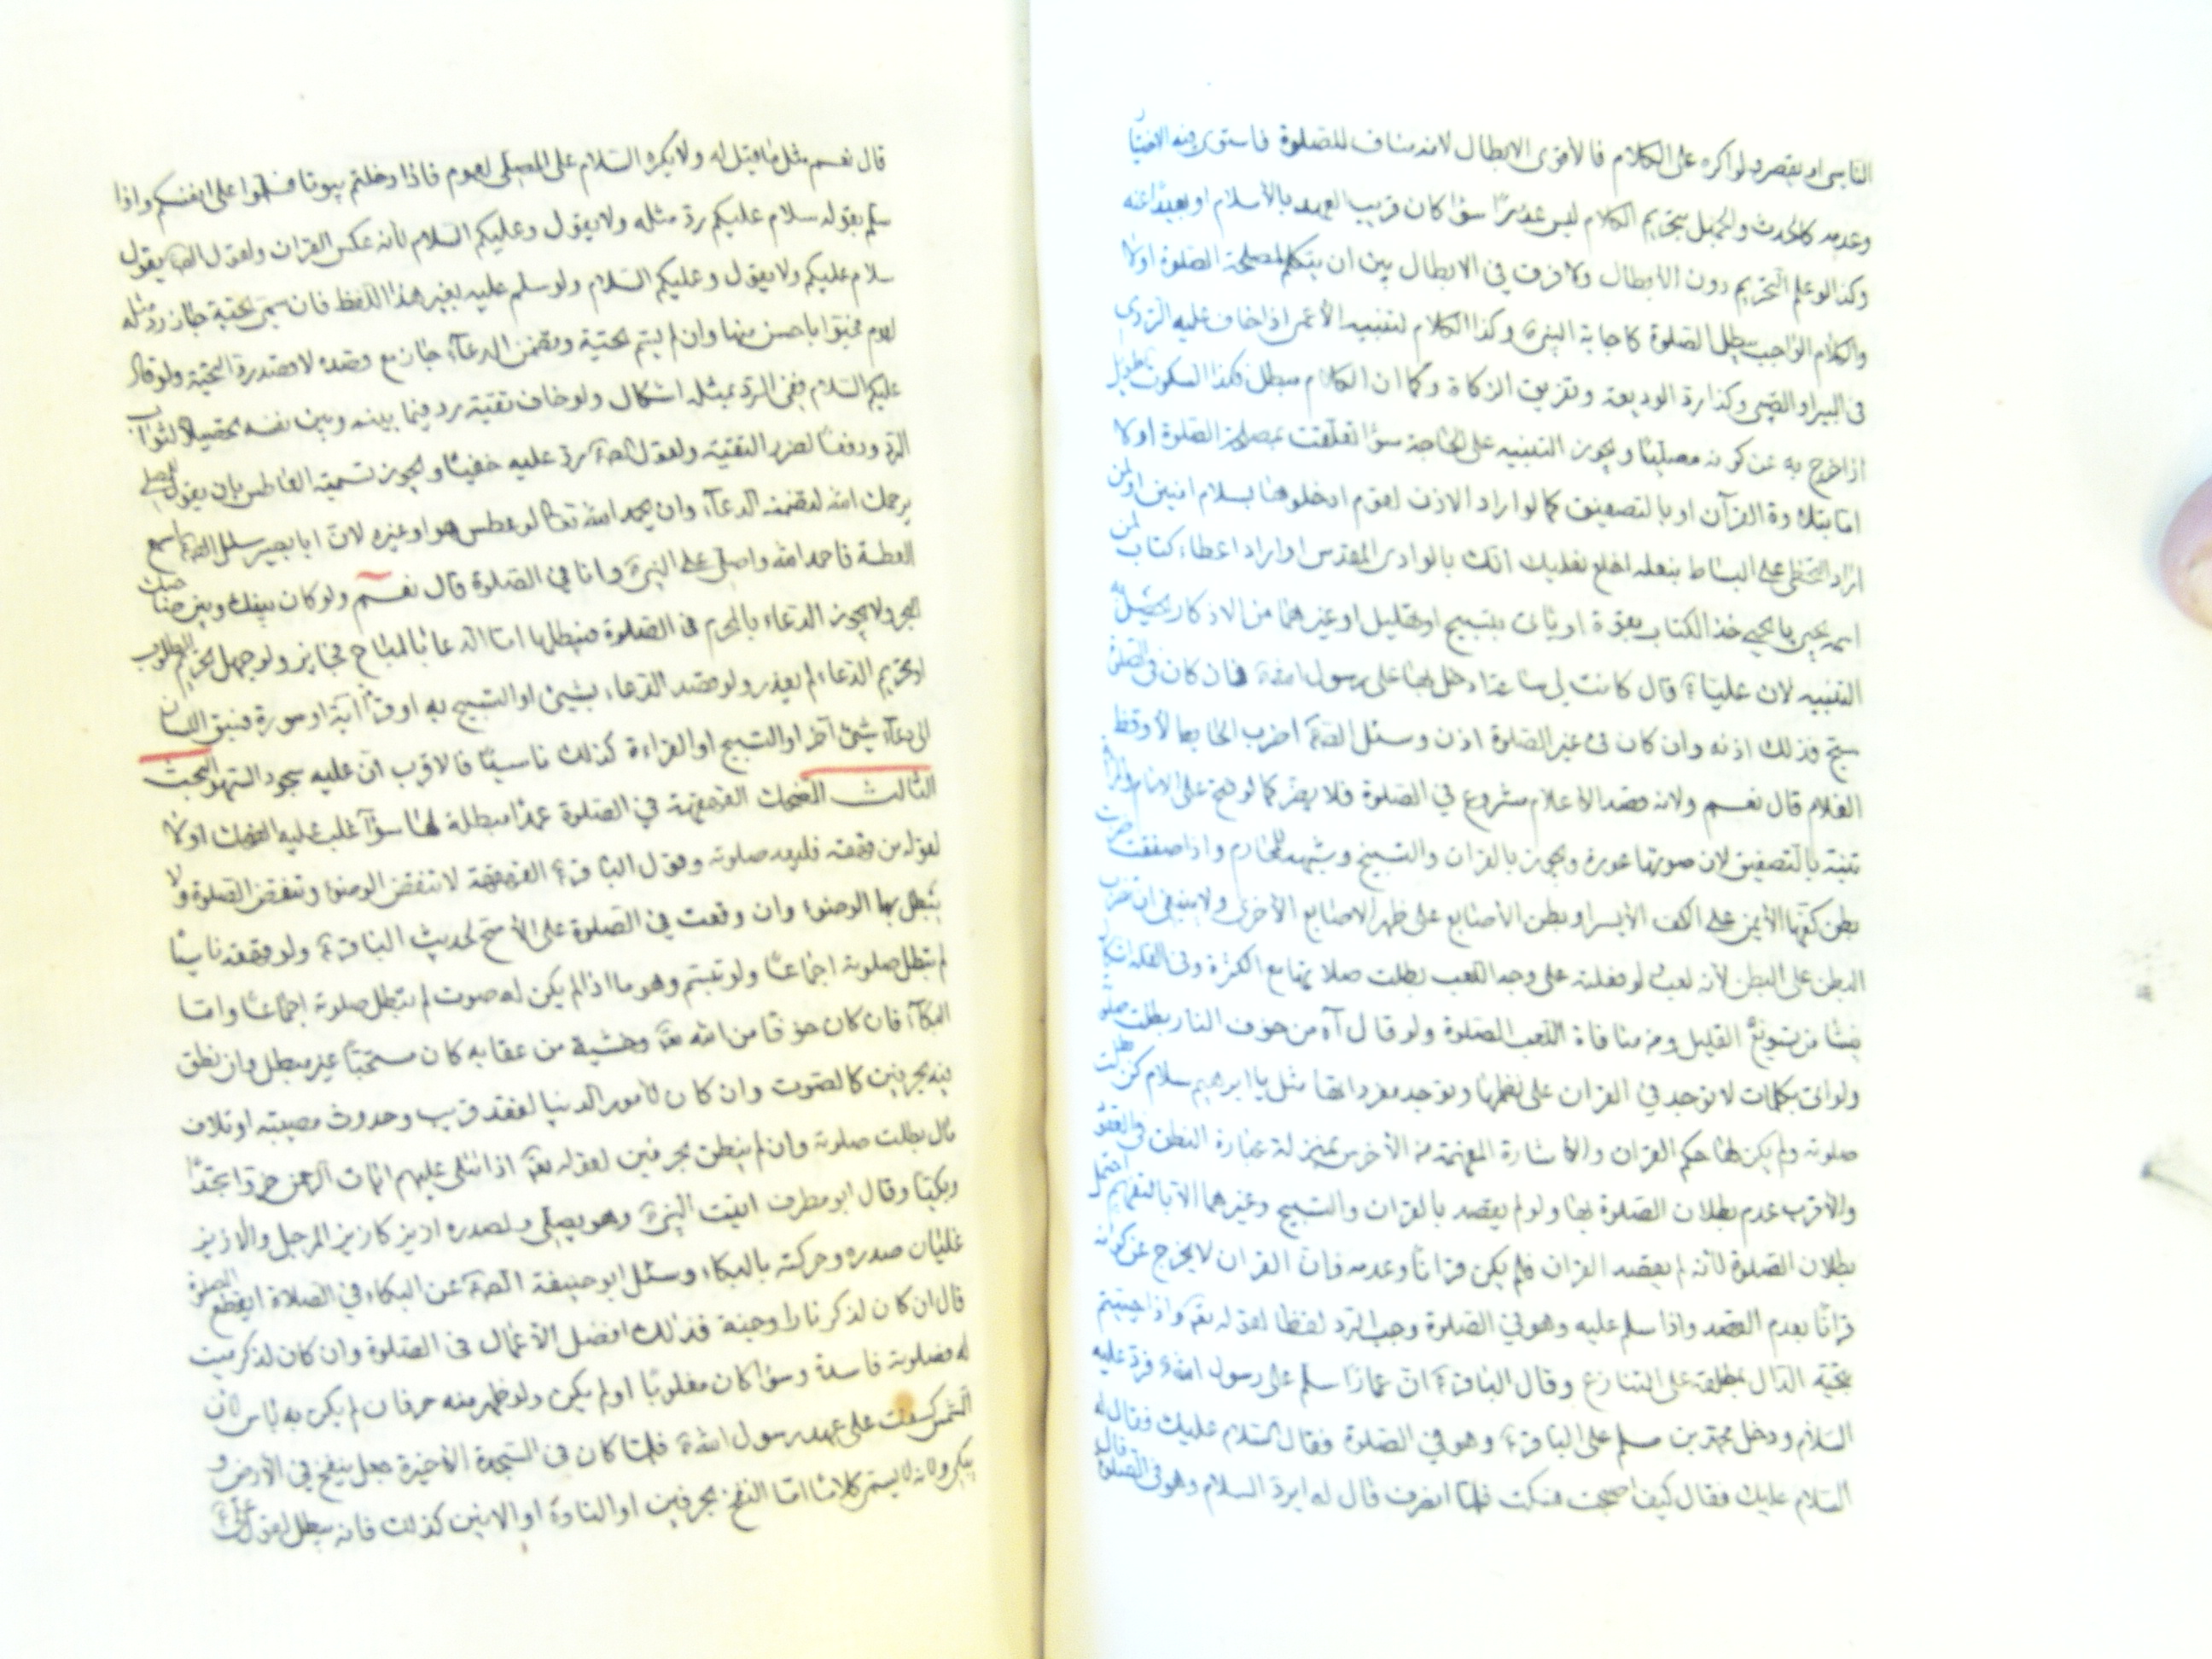 الناسي او يقصر ولو اكره على الكلام فالأقوى الابطال لانه مناف للصلوة فاستوى فيه الاختيار
وعدمه كالحدث والجهل بتحريم الكلام ليس عذرًا سواء كان قريب العهد بالأسلام او بعيدًا عنه
وكذا لو علم التحريم دون الابطال ولا فرق في الابطال بين ان يتكلم لمصلحة الصلوة اولا
والكلام الواجب يبطل الصلوة كاجابة النبي وكذا الكلام لتنبيه الأعمى اذا خاف عليه التردي
في البير او الصبي وكذا رد الوديعة وتفريق الزكاة وكما ان الكلام مبطل فكذا السكوت طويل
اذا خرج به عن كونه مصليًا ويجوز التنبيه على الحاجة سواء تعلقت بمصلحة الصلوة اولا
اما بتلاوة القرآن او بالتصفيق كما لو اراد الاذن لقوم ادخلوها بسلام امنين او لمن
اراد التخطي على البساط بنعله اخلع نعليك انك بالوادى المقدس او اراد اعطاء كتاب لمن
اسمه يحيى يا يحيى خذ الكتاب بقوة او يأتى بتسبيح او تهليل او غيرهما من الاذكار يحصل به
التنبيه لان عليًا ع قال كانت لي ساعة ادخل بها على رسول الله ص فان كان في الصلوة
سبح فذلك اذنه وان كان في غير الصلوة اذن وسئل الصادق اضرب الحايط لأوقظ
الغلام قال نعم ولانه قصد الاعلام مشروع في الصلوة فلا يضر كما لو فتح على الامام والمرأة
تنبه بالتصفيق لان صوتها عورة ويجوز بالقران والتسبيح وشبهه للمحارم واذا صفقت ضربت
بطن كفها الأيمن على الكف الأيسر او بطن الأصابع على ظهر الاصابع الأخرى ولا ينبغى ان تضرب
البطن على البطن لأنه لعب لو فعلته على وجه اللعب بطلت صلاتها مع الكثرة وفى القلة اشكال
ينشأ من تسويغ القليل ومن منافاة اللعب الصلوة ولو قال آه من خوف النار بطلت صلوته
ولو اتى بكلمات لا توجد في القران على نظمها وتوجد مفرداتها مثل يا ابرهيم سلام كن بطلت
صلوته ولم يكن لها حكم القران والاشارة المفهمة من الأخرس بمنزلة عبارة النطق في العقود
والأقرب عدم بطلان الصلوة بها ولو لم يقصد بالقران والتسبيح وغيرهما الا بالتفهيم احتمل
بطلان الصلوة لأنه لم يقصد القران فلم يكن قرانًا وعدمه فان القران لا يخرج عن كونه
قرانًا بعدم القصد واذا سلم عليه وهو في الصلوة وجب الرد لفظا لقوله تعالى واذا حييتم
بتحية الدال بمطلقه على التنازع وقال الباقر ع ان عمارًا سلم على رسول الله ص فرد عليه
السلام ودخل محمد بن مسلم على الباقر ع وهو في الصلوة فقال السلام عليك فقال له
السلام عليك فقال كيف اصبحت فسكت فلما انصرف قال له ايرد السلام وهو في الصلوة قال
قال نعم مثل ما قيل له ولا يكره السلام على المصلى لعموم فاذا دخلتم بيوتا فسلموا على انفسكم واذا
سلم بقوله سلام عليكم رد مثله ولا يقول وعليكم السلام لأنه عكس القران ولقول الصادق يقول
سلام عليكم ولا يقول وعليكم السلام ولو سلم عليه بغير هذا اللفظ فان سمى تحية جاز رد مثله
لعموم فحيوا باحسن منها وان لم يسم تحية وتضمن الدعاء جاز مع قصده لا قصد رد التحية ولو قال
عليكم السلام ففي الرد بمثله اشكال ولو خاف تقية رد فيما بينه وبين نفسه تحصيلا لثواب
الرد ودفعًا لضرر التقية ولقول الصادق رد عليه خفيًا ويجوز تسمية العاطس بان يقول المصلي
يرحمك الله لتضمنه الدعاء وان يحمد الله تعالى لو عطس هو او غيره لان ابا بصير سئل الصادق اسمع
العطسة فاحمد الله واصلى على النبي وانا في الصلوة قال نعم ولو كان بينك وبين صاحبك
البحر ولا يجوز الدعاء بالمحرم في الصلوة فيبطلها اما الدعا بالمباح فجايز ولو جهل تحريم المطلوب
او تحريم الدعاء لم يعذر ولو قصد الدعاء بشيئ او التسبيح به او قرأ آية او سورة فسبق اللسان
الى دعاء شيئ آخر او التسبيح او القراءة كذلك ناسيًا فالاقرب ان عليه سجود السهو البحث
الثالث الضحك القهقهة في الصلوة عمدًا مبطلة لها سواء غلب عليه الضحك اولا
لقوله من قهقه فليعد صلوته وقول الباقر ع القهقهة لا تنقض الوضوء وتنقض الصلوة ولا
يبطل بها الوضوء وان وقعت في الصلوة على الأصح لحديث الباقر ع ولو قهقه ناسيًا
لم تبطل صلوته اجماعًا ولو تبسم وهو ما اذا لم يكن له صوت لم تبطل صلوته اجماعًا واما
البكاء فان كان خوفا من الله تعالى وخشية من عقابه كان مستحبًا غير مبطل وان نطق
فيه بحرفين كالصوت وان كان لأمور الدنيا لفقد قريب وحدوث مصيبته او تلاف
مال بطلت صلوته وان لم ينطق بحرفين لقوله تعالى اذا تتلى عليهم ايات الرحمن خروا سجدًا
وبكيًا وقال ابو مطرف اتيت النبي وهو يصلى ولصدره ازيز كازيز المرجل والازيز
غليان صدره وحركته بالبكاء وسئل ابو حنيفة الصادق عن البكاء في الصلاة ايقطع الصلوة
قال ان كان لذكر نار او جنة فذلك افضل الأعمال في الصلوة وان كان لذكر ميت
له فصلوته فاسدة وسواء كان مغلوبًا او لم يكن ولو ظهر منه حرفان لم يكن به بأس لأن
الشمس كسفت على عهد رسول الله ص فلما كان في السجدة الأخيرة جعل ينفخ في الأرض و
يبكى ولانه لا يسمى كلامًا اما النفخ بحرفين او التاوه او الانين كذلك فانه يبطل لقول علي ع